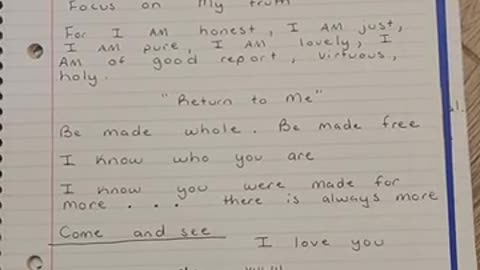 Focus on My truth
For I AM honest, I AM just,
I AM pure, I AM lovely, I
AM of good report, virtuous,
holy.
"Return to Me"
Be made whole. Be made free
I know who you are
I know you were made for
more... there is always more
Come and see
I love you